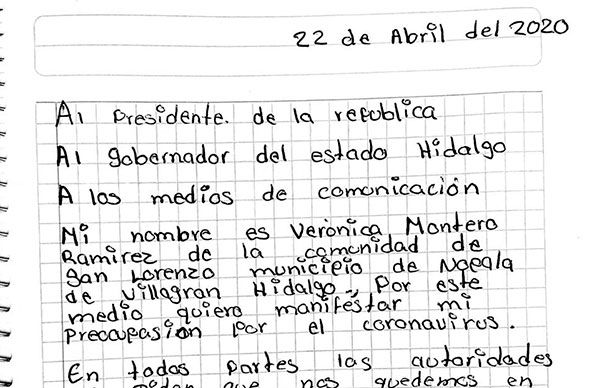 22 de Abril del 2020
Al Presidente. de la republica
Al gobernador del estado Hidalgo
A los medios de comunicación
Mi nombre es Verónica Montero
Ramirez de la comunidad de
San Lorenzo municipio de Nopala
de Villagran Hidalgo, por este
medio quiero manifestar mi
Preocupasión por el coronavirus.
En todas partes las autoridades
que nos quedemos en